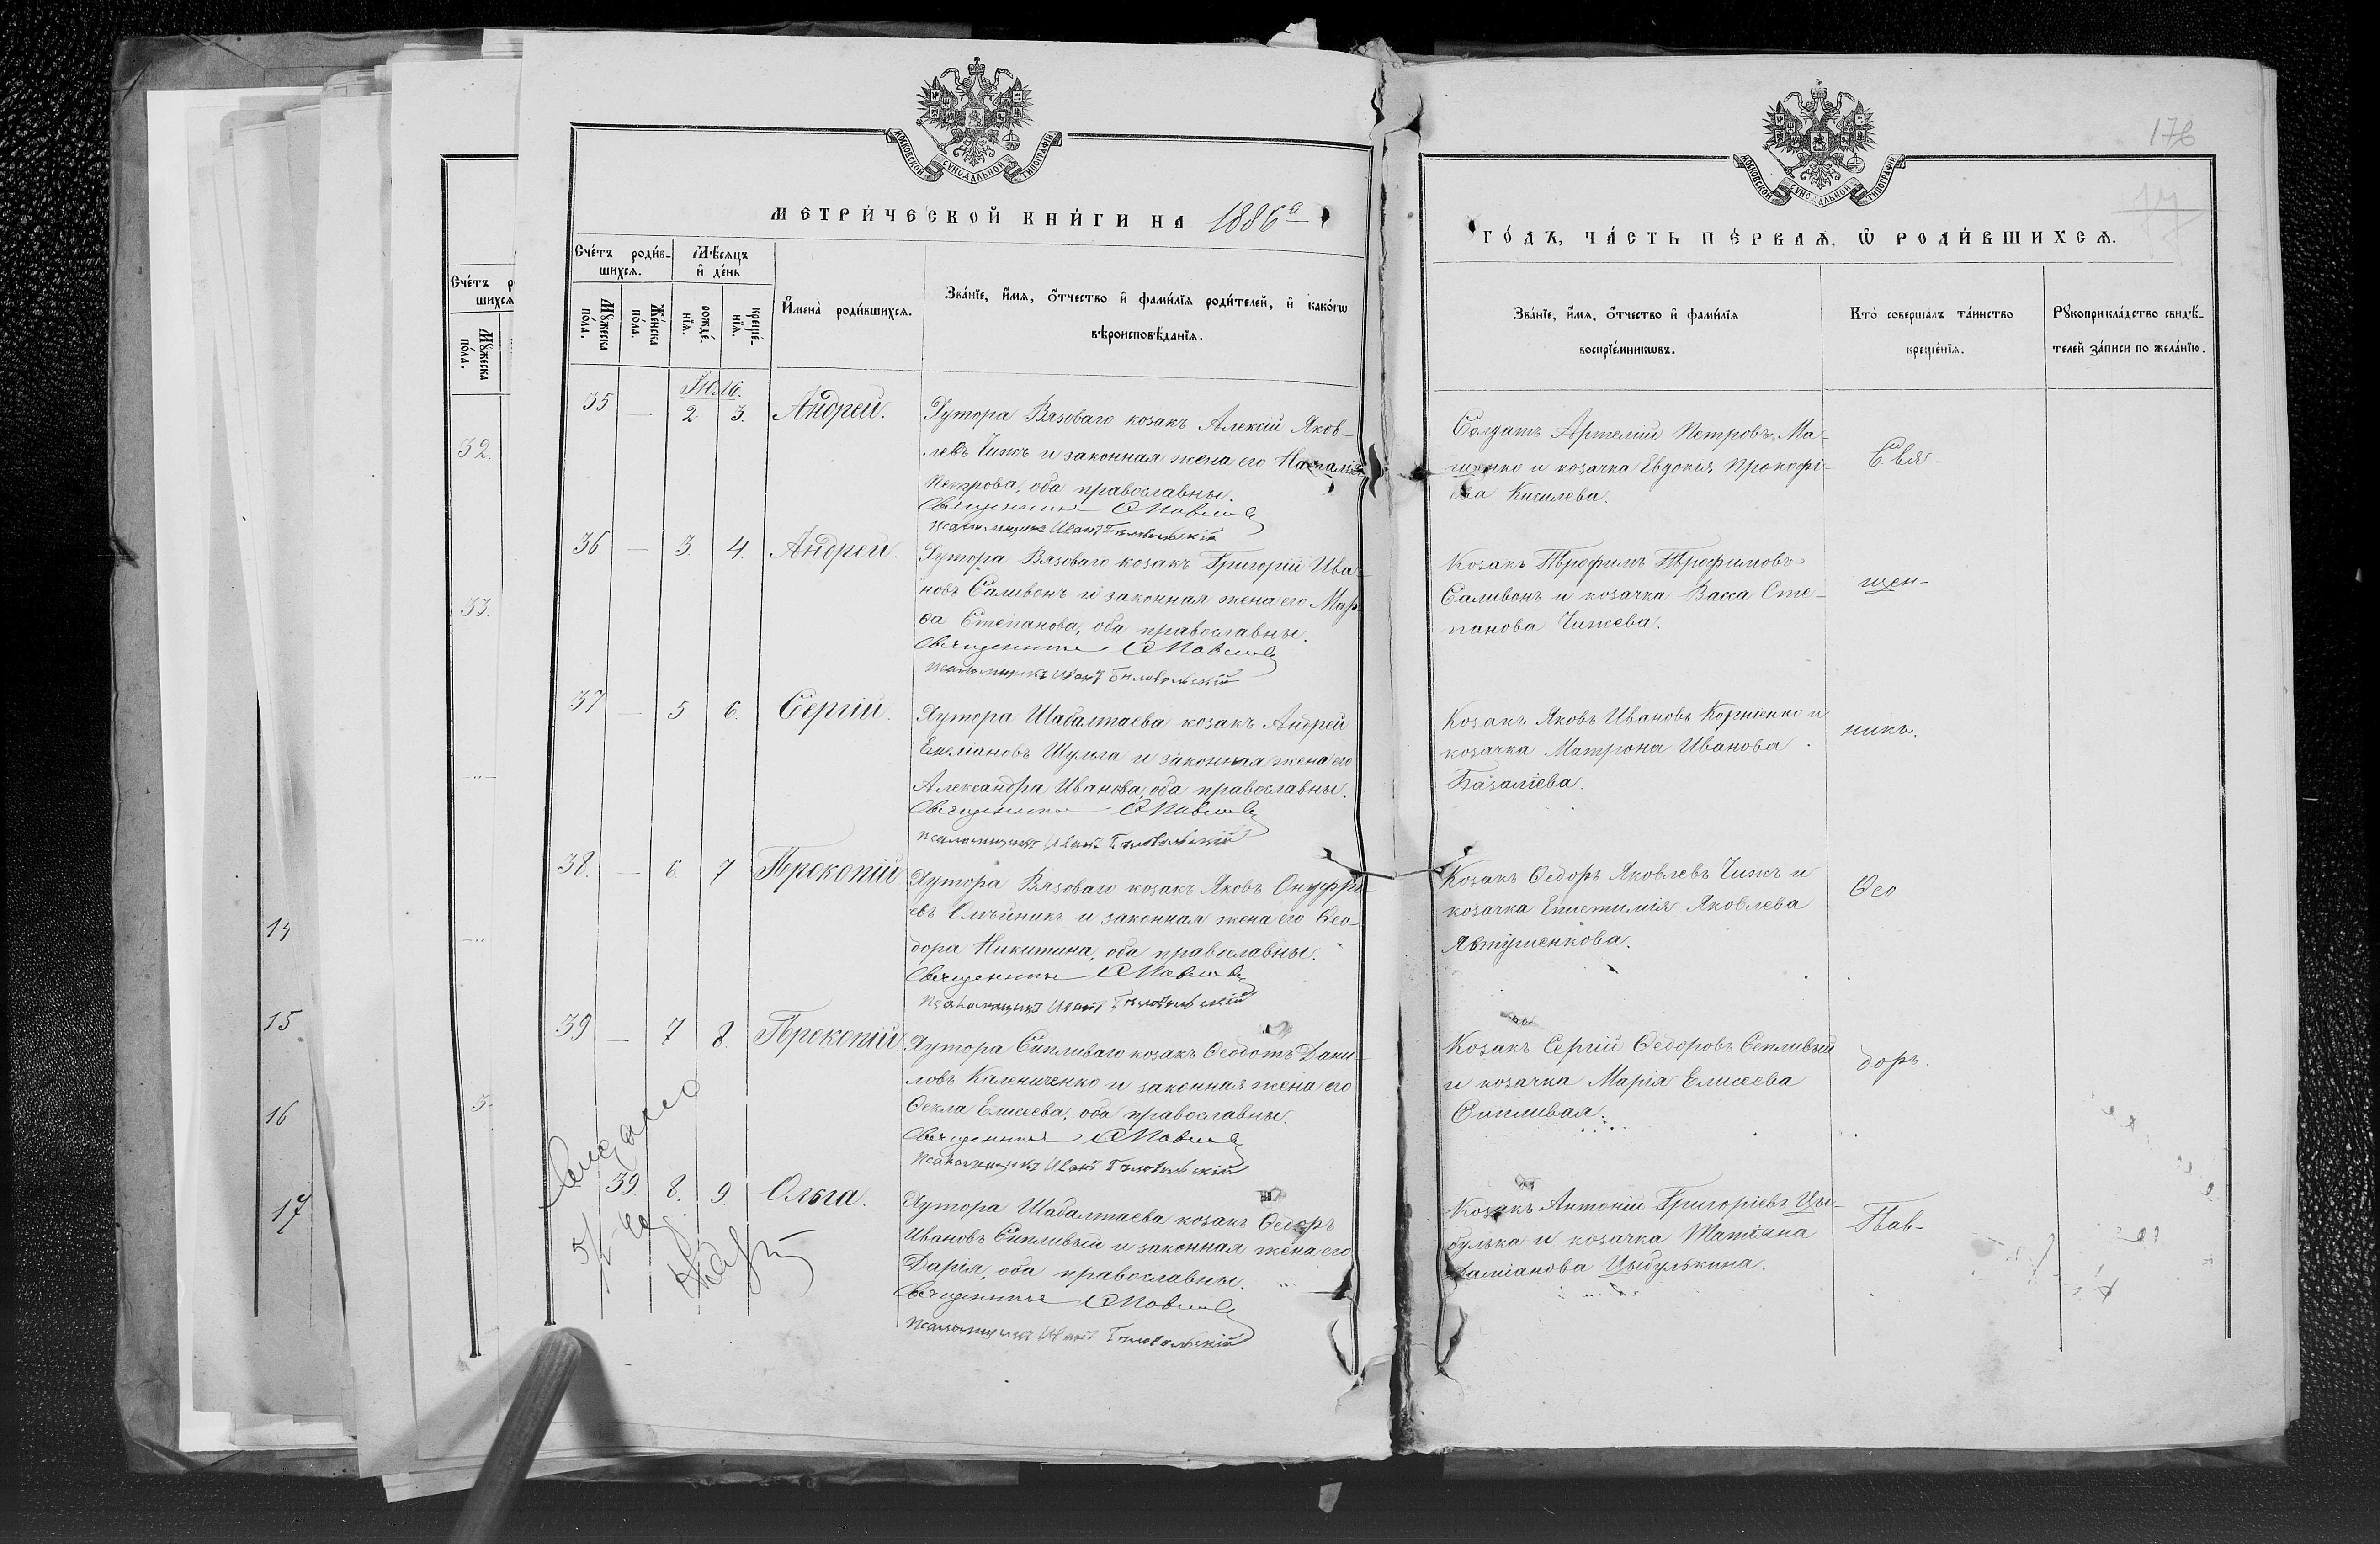 МОСКОВСКОЙ СѴНОДАЛЬНОЙ ТИПОГРАФІИ
МЕТРИ́ЧЕСКОЙ КНИ́ГИ НА 1886й
Сче́тъ роди́в-
шихсѧ.
Мѣ́сяцъ
и҆ де́нь
Мꙋ́жеска
по́ла.
Же́нска
по́ла.
рожде́-
нїѧ.
креще́-
нїѧ.
И҆мена̀ роди́вшихсѧ.
Зва́нїе, и҆́мѧ, ѻ҆́тчество и҆ фами́лїѧ роди́телей, и҆ како́гѡ
вѣроисповѣ́данїѧ.
35 — 2 3. Андрей.
Хутора Вязоваго козакъ Алексій Яков-
левъ Чижъ и законная жена его Наталія
Петрова, оба православны.
Священникъ Ѳ Павловъ
Псаломщикъ Иванъ
36. — 3. 4. Андрей.
Хутора Вязоваго козакъ Григорій Ива-
новъ Саливонъ и законная жена его Мар-
ѳа Степанова, оба православны.
Священникъ Ѳ Павловъ
Псаломщикъ Иванъ
37 — 5 6. Сергій.
Хутора Шабалтаева козакъ Андрей
Емеліановъ Шульга и законная жена его
Александра Иванова, оба православны.
Священникъ Ѳ Павловъ
Псаломщикъ Иванъ
38. — 6. 7 Прокопій
Хутора Вязоваго козакъ Яковъ Онуфрі-
евъ Олѣйникъ и законная жена его Ѳео-
дора Никитина, оба православны.
Священникъ Ѳ Павловъ
Псаломщикъ Иванъ
39 — 7 8. Прокопій
Хутора Сипливаго козакъ Ѳеодотъ Дани-
ловъ Калениченко и законная жена его
Ѳекла Елисеева, оба православны.
Священникъ Ѳ Павловъ
Псаломщикъ Иванъ
39. 8. 9. Ольга.
Хутора Шабалтаева козакъ Ѳедоръ
Ивановъ Сипливый и законная жена его
Дарія, оба православны.
Священникъ Ѳ Павловъ
Псаломщикъ Иванъ
Сче́тъ
шихсѧ
Мꙋ́жеска
по́ла.
32.
33.
14
15
16
17
176
17
МОСКОВСКОЙ СѴНОДАЛЬНОЙ ТИПОГРАФІИ
ГО́ДЪ, ЧА́СТЬ ПЕ́РВАѦ, Ѽ РОДИ́ВШИХСѦ.
Зва́нїе, и҆́мѧ, ѻ҆́тчество и҆ фами́лїѧ
воспрїе́мникѡвъ.
Кто̀ соверша́лъ та́инство
креще́нїѧ.
Рꙋкоприкла́дство свидѣ́-
телей за́писи по жела́нїю.
Солдатъ Артемій Петровъ Ма-
щенко и козачка Евдокія Прокофі-
ева Киселева.
Свя-
Козакъ Трофимъ Трофимовъ
Саливонъ и козачка Васса Сте-
панова Чижева.
щен-
Козакъ Яковъ Ивановъ Корніенко и
козачка Матрона Иванова
Базаліева.
никъ.
Козакъ Ѳедоръ Яковлевъ Чижъ и
козачка Епистимія Яковлева
Явтушенкова.
Ѳео
Козакъ Сергій Ѳедоровъ Сипливый
и козачка Марія Елисеева
Сипливая.
доръ.
Козакъ Антоній Григоріевъ Цы-
булька и козачка Татіана
Даміанова Цыбулькина.
Пав-